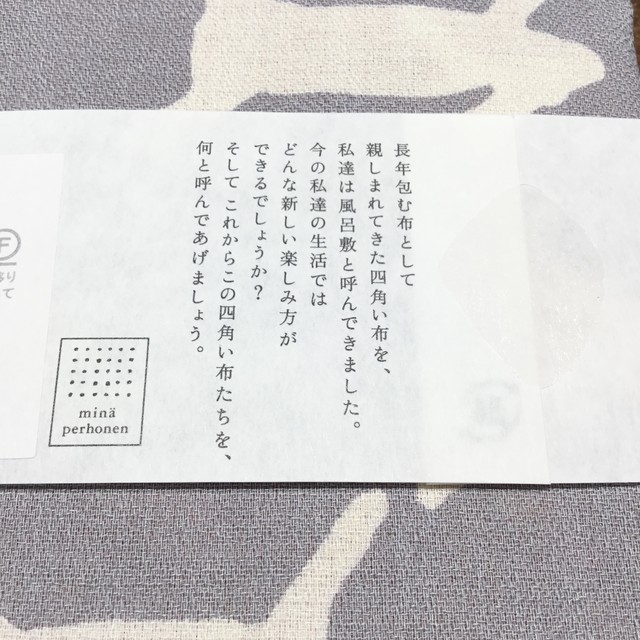 長年包む布として
親しまれてきた四角い布を、
私達は風呂敷と呼んできました。
今の私達の生活では
どんな新しい楽しみ方が
できるでしょうか？
そして これからこの四角い布たちを、
何と呼んであげましょう。
minä
perhonen